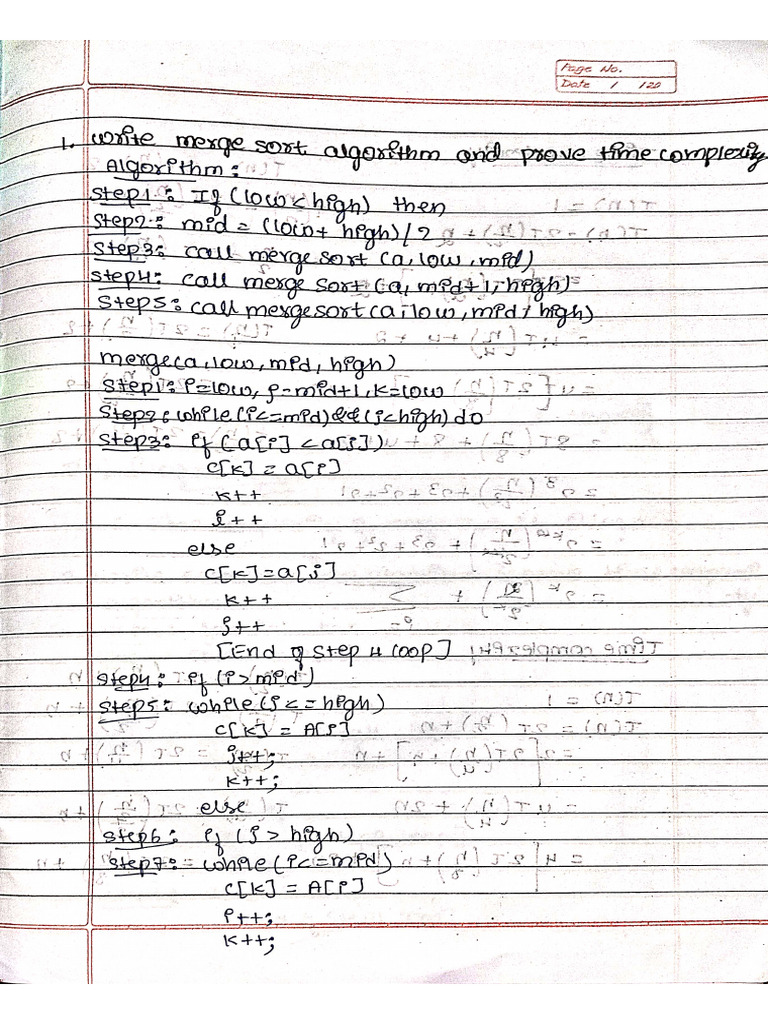 Page No.
Date / /20
1. Write merge sort algorithm and prove time complexity
Algorithm:
Step1: If (low < high) then
Step2: mid = (low + high) / 2
Step3: call merge sort (a, low, mid)
Step4: call merge sort (a, mid+1, high)
Step5: call mergesort (a, low, mid, high)
merge(a, low, mid, high)
Step1: i=low, j=mid+1, k=low
Step2: while (i<=mid) && (j<high) do
Step3: if (a[i] < a[j])
c[k] = a[i]
k++
i++
else
c[k]=a[j]
k++
j++
[End of step 4 loop]
Step4: if (i>mid)
Step5: while (j<=high)
c[k] = A[j]
j++;
k++;
else
Step6: if (j > high)
Step7: while (i<=mid)
c[k] = A[i]
i++;
k++;